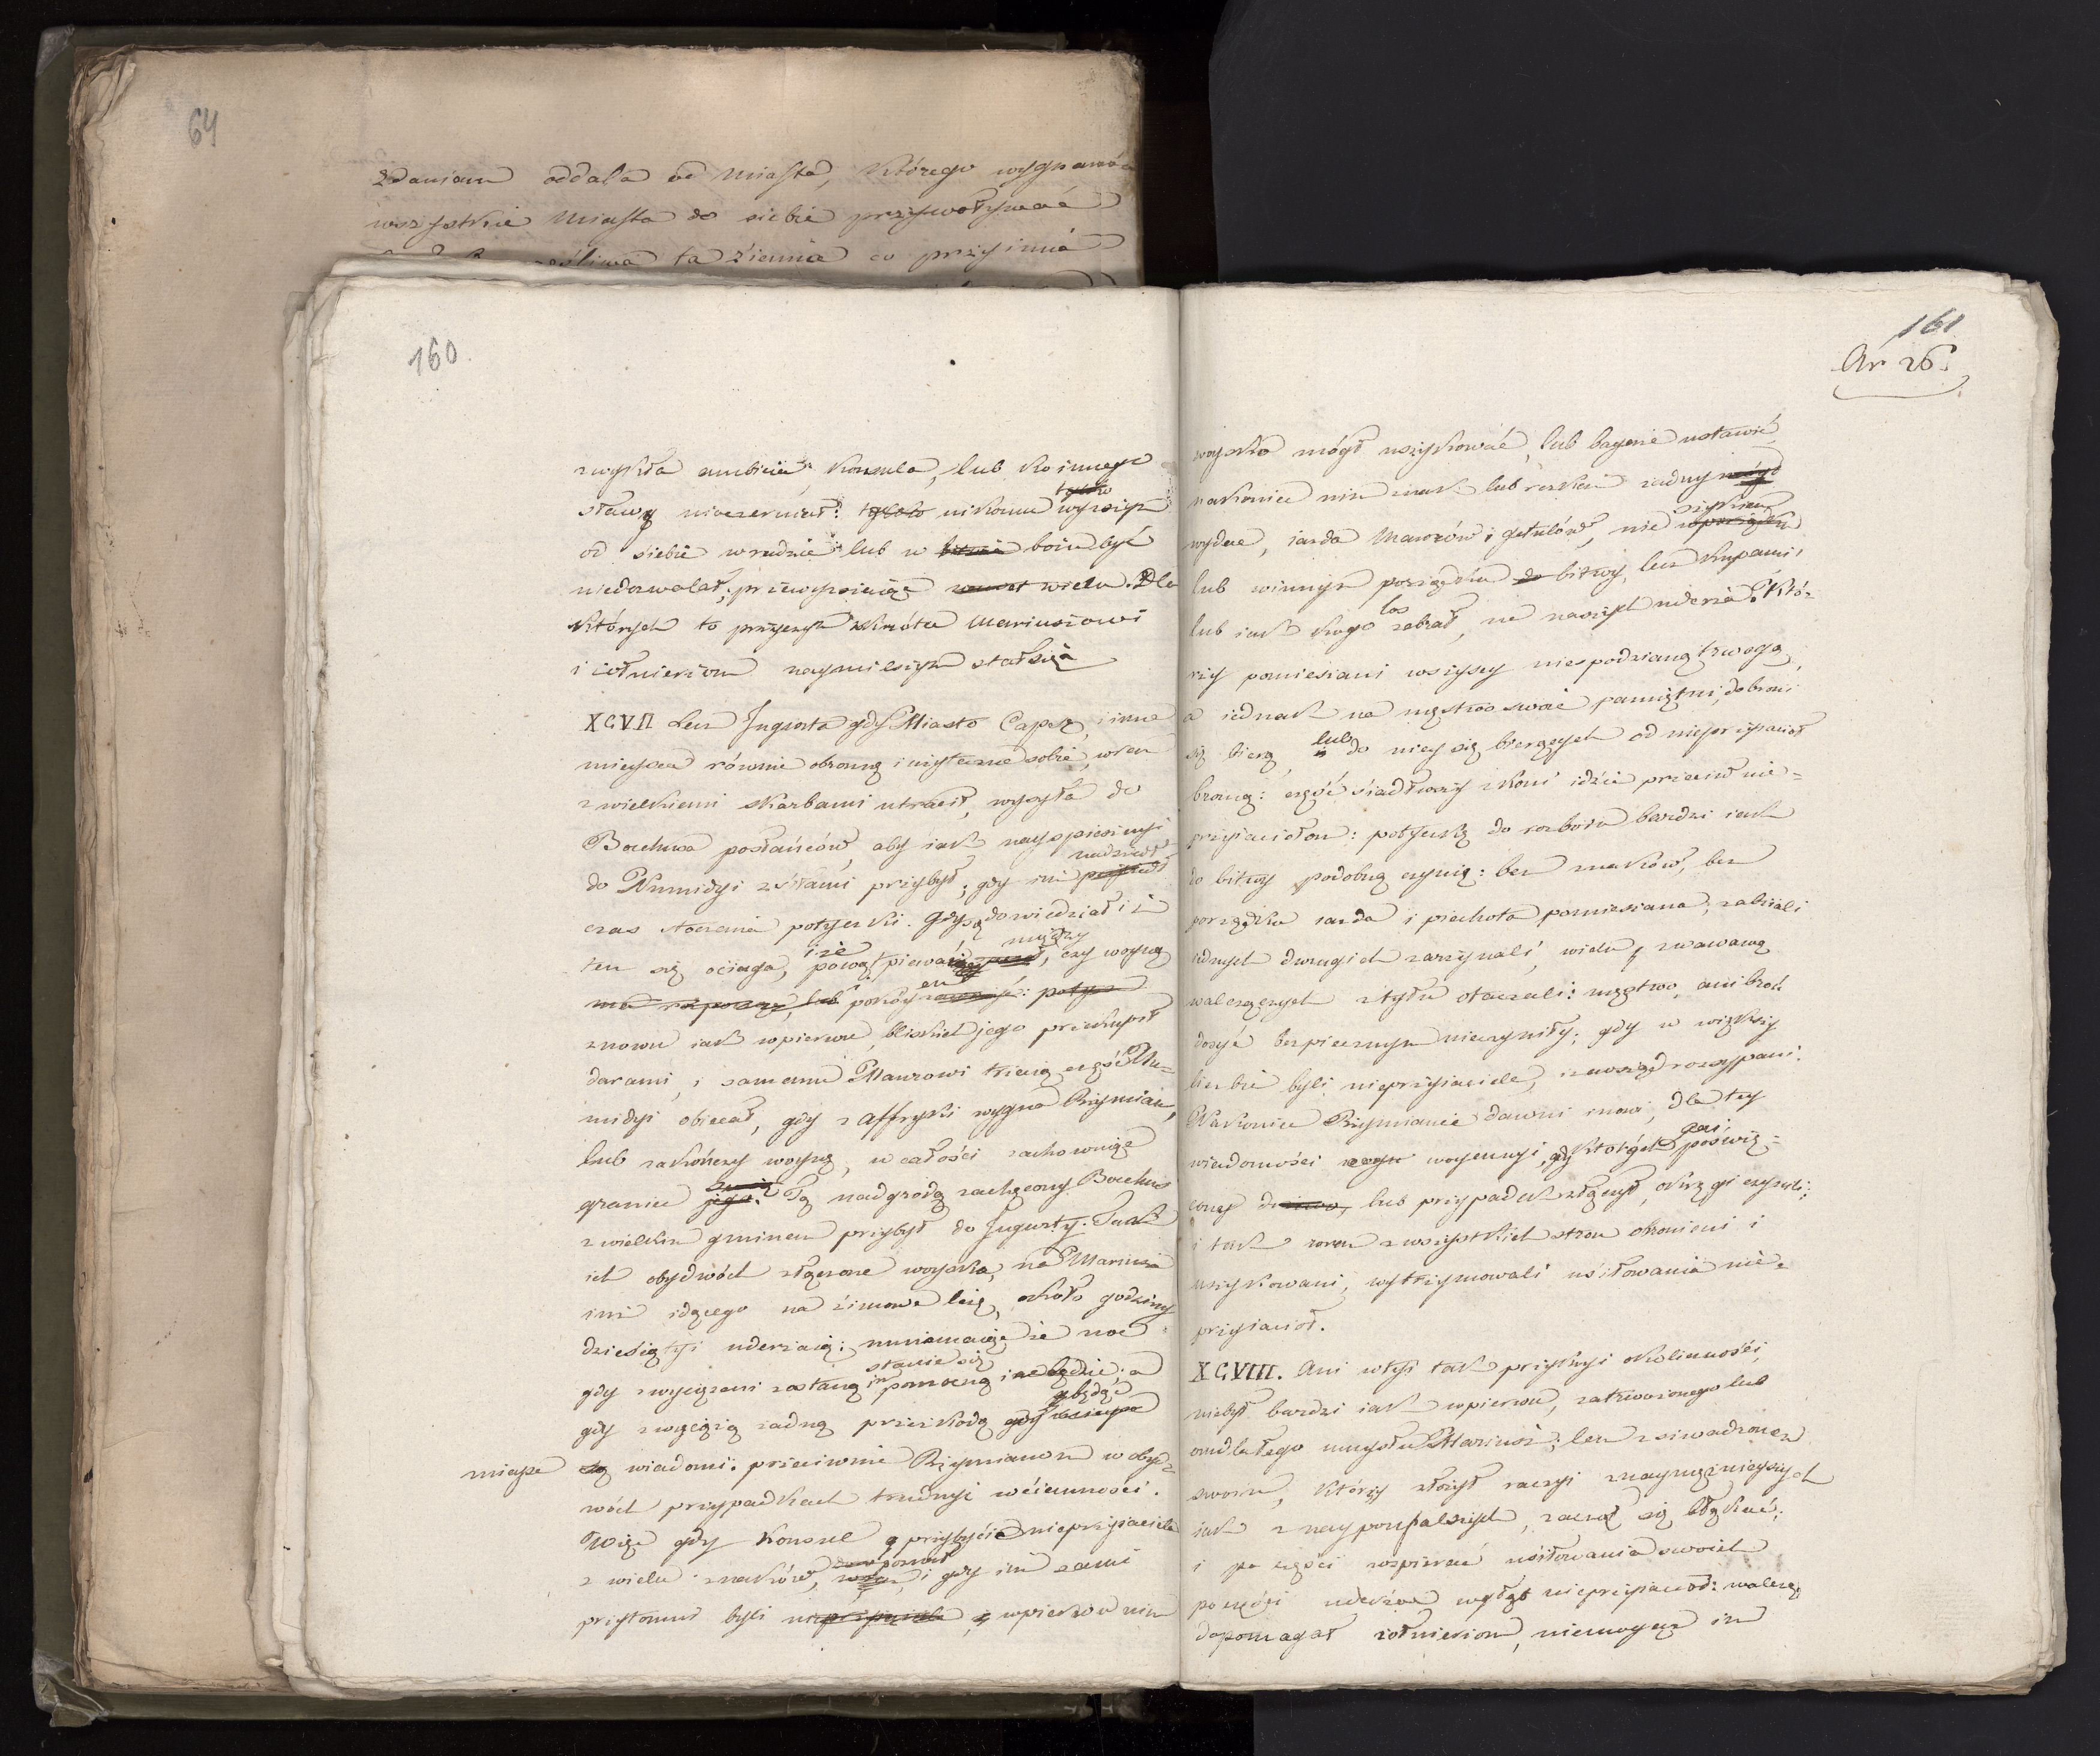 64
zdaniem oddala od miasta, którego wygnańca
wszystkie miasta do siebie przywoływać
ta ziemia co przyimie
160
zwykła ambicia konsula, lub ko innego
sławy nieczerniał: tylko nikomu wyższym
od siebie w radzie lub w boiu być
niedozwalał, przewyższaiąc wielu. Dla
których to przyczyn wkrótce Mariuszowi
i żołnierzom naymilszym stał się
XCVII Lecz Jugurta gdy Miasto Capsę, i inne
mieysca równie obronne i użyteczne sobie, wraz
z wielkiemi skarbami utracił, wysyła do
Bocchusa posłańców, aby iak nayspieszniey
nadszedł
do Numidyi z siłami przybył; gdy iuż
czas stoczenia potyczki. Gdy się dowiedział iż
iże między
ten się ociąga, powątpiewaiąc, czy woynę
pokóy
znowu iak wpierwey bliskich jego przekupił
darami, i samemu Maurowi trzecią część Nu-
midyi obiecał, gdy z Affryki wygna Rzymian,
lub zakończy woynę, w całości zachowuiąc
granice jego. Tą nadgrodą zachęcony Bocchus
z wielkim gminem przybył do Jugurty. Tak
ich obydwóch złączone woyska, na Mariusza
iuż idącego na zimowe leże, około godziny
dziesiątey uderzaią; mniemaiąc że noc
stanie się
gdy zwyciężeni zostaną im pomocną i a
będąc
gdy zwyciężą żadną przeszkodą
mieysc wiadomi: przeciwnie Rzymianom w oby-
wóch przypadkach trudniey w ciemności.
Więc gdy Konsul o przybyciu nieprzyiaciela
z wielu znaków, i gdy iuż sami
przytomni byli wpierw nim
161
Ar 26.
woysko mógł uszykować, lub bagaże ustawić
nakoniec nim znak lub rozkaz żadny mógł
szykiem
wydać, iazda Maurów i Getulów, nie
lub innym porządku do bitwy, lecz kupami,
los
lub iak kogo zebrał, na naszych uderza. Któ-
rzy pomieszani wszyscy niespodzianą trwogą
a iednak na męstwo swoie pamiętni, do broni
lub
się biorą, do niey się biorących od nieprzyiaciół
bronią: część siadłszy z koni idzie przeciw nie-
przyiaciołom: potyczkę do rozboiu bardziej iak
do bitwy podobną czynią: bez znaków, bez
porządku iazda i piechota pomieszana; zabiiali
iednych drugich zarzynali, wielu zwawo
walczących z tyłu otaczali: męstwo, ani broń
dosyć bezpiecznym nieczyniły; gdy w większey
liczbie byli nieprzyiaciele, i zewsząd rozsypani.
Nakoniec Rzymianie dawni i nowi, dla tey
wiadomości woyenney, gdy których
lub przypadek złączył, okręgi czynili;
i tak zaraz z wszystkich stron obronieni i
uszykowani, wytrzymowali usiłowania nie-
przyiaciół.
XCVIII. Ani w tey tak przykrey okoliczności,
niebył bardziey iak wpierw, zatrwożonego lub
omdlałego umysłu Mariusz; lecz z
swoim, który złożył raczey z naymężnieyszych
iak z naypoufalszych, zaczął się błąkać;
i po części wspierać usiłowania swoich
po części uderzać w głąb nieprzyiaciół: walczą
dopomagał żołnierzom, niemogąc im